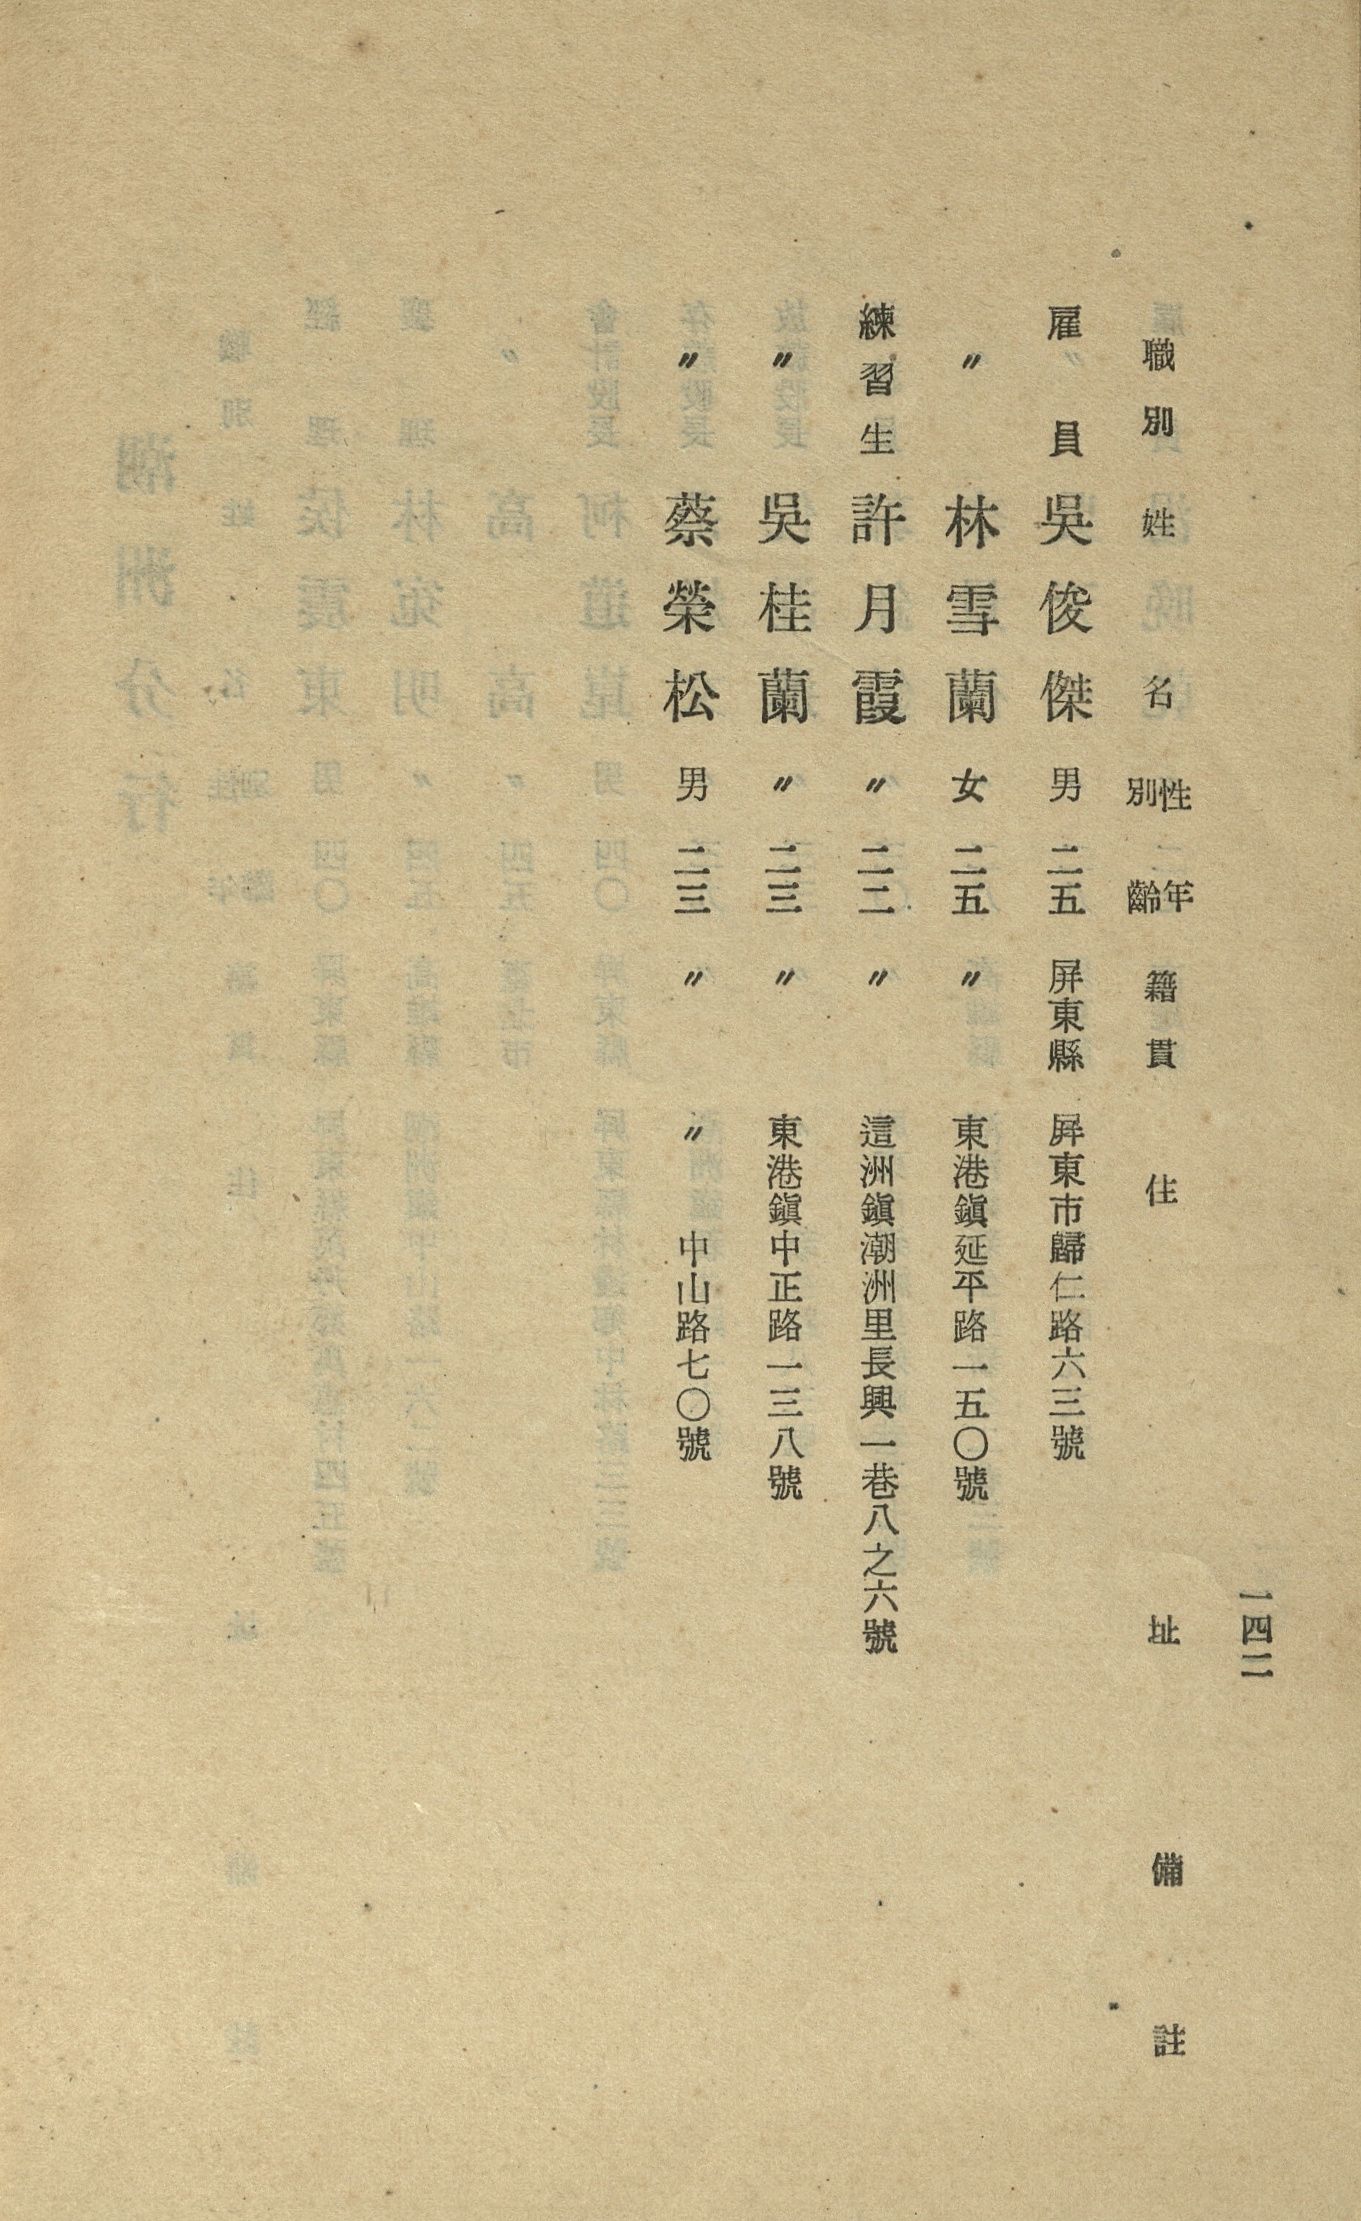 一四二
職別 姓名 性別 年齡 籍貫 住址 備註
雇員 吳俊傑 男 二五 屏東縣 屏東市歸仁路六三號
〃 林雪蘭 女 二五 〃 東港鎭延平路一五〇號
練習生 許月霞 〃 二二 〃 這洲鎭潮洲里長興一巷八之六號
〃 吳桂蘭 〃 二三 〃 東港鎭中正路一三八號
〃 蔡榮松 男 二三 〃 〃 中山路七〇號